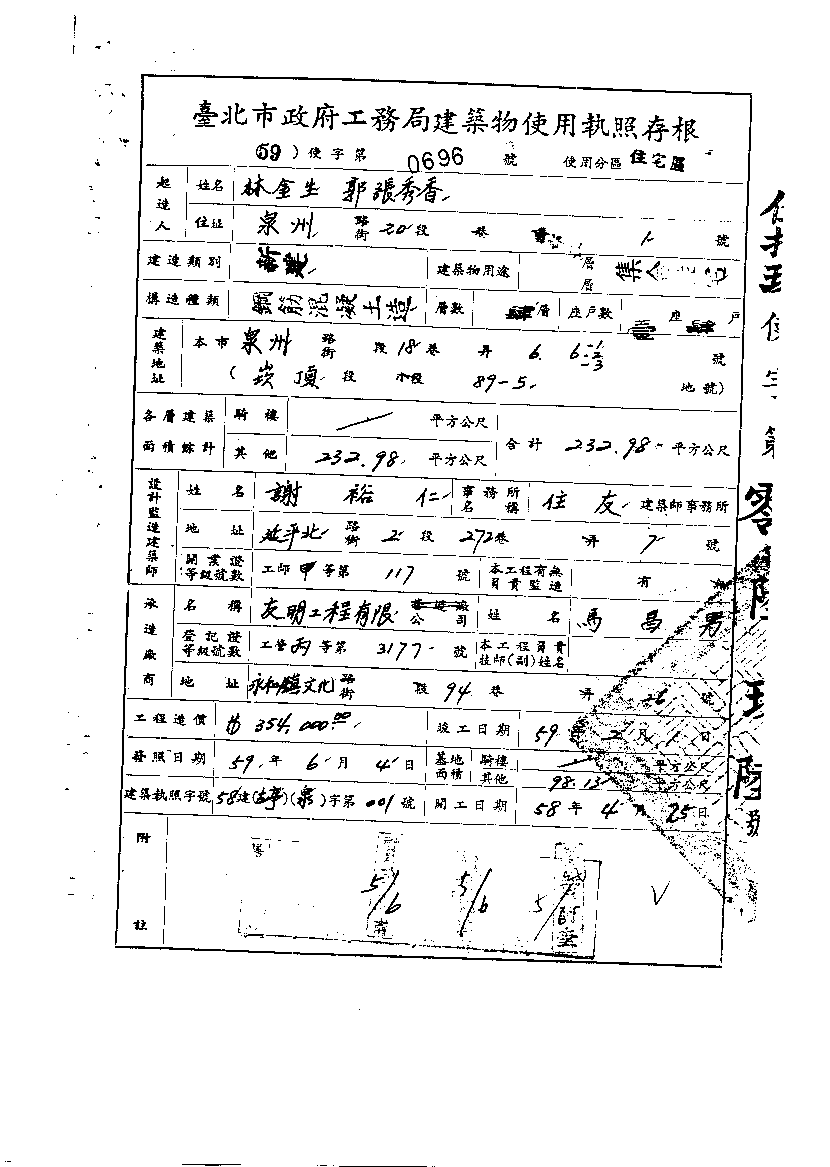 臺北市政府工務局建築物使用執照存根
(59)使字第 0696 號 使用分區 住宅區
起造人 姓名 林金生 郭張秀香
住址 泉州 路街 20 段 巷 1 號
建造類別 新建 建築物用途 層 層
構造種類 鋼筋混凝土造 層數 肆 層 座戶數 壹 座 肆 戶
建築地址 本市 泉州 路街 段 18 巷 弄 6. 6-1 -2 -3 號
(崁頂 段 小段 89-5. 地號)
各層建築面積總計 騎樓 平方公尺 合計 232.98 平方公尺
其他 232.98 平方公尺
設計監造建築師 姓名 謝裕仁 事務所名稱 住友 建築師事務所
地址 延平北 路街 2 段 272 巷 弄 7 號
開業證等級號數 工師 甲 等第 117 號 本工程有無負責監造 有
承造廠商 名稱 友明工程有限 營造廠 公司 姓名 馬昌
登記證等級號數 工營 丙 等第 3177 號 本工程負責技師(副)姓名
地址 永和鎮文化 路街 段 94 巷 弄 26 號
工程造價 354,000.00 竣工日期 59 年 2 月 1 日
發照日期 59 年 6 月 4 日 基地面積 騎樓 平方公尺
其他 98.13 平方公尺
建築執照字號 58建(古亭)(泉)字第 001 號 開工日期 58 年 4 月 25 日
附註
5/6 5/6 5/
使字第
零
陸
玖
陸
號